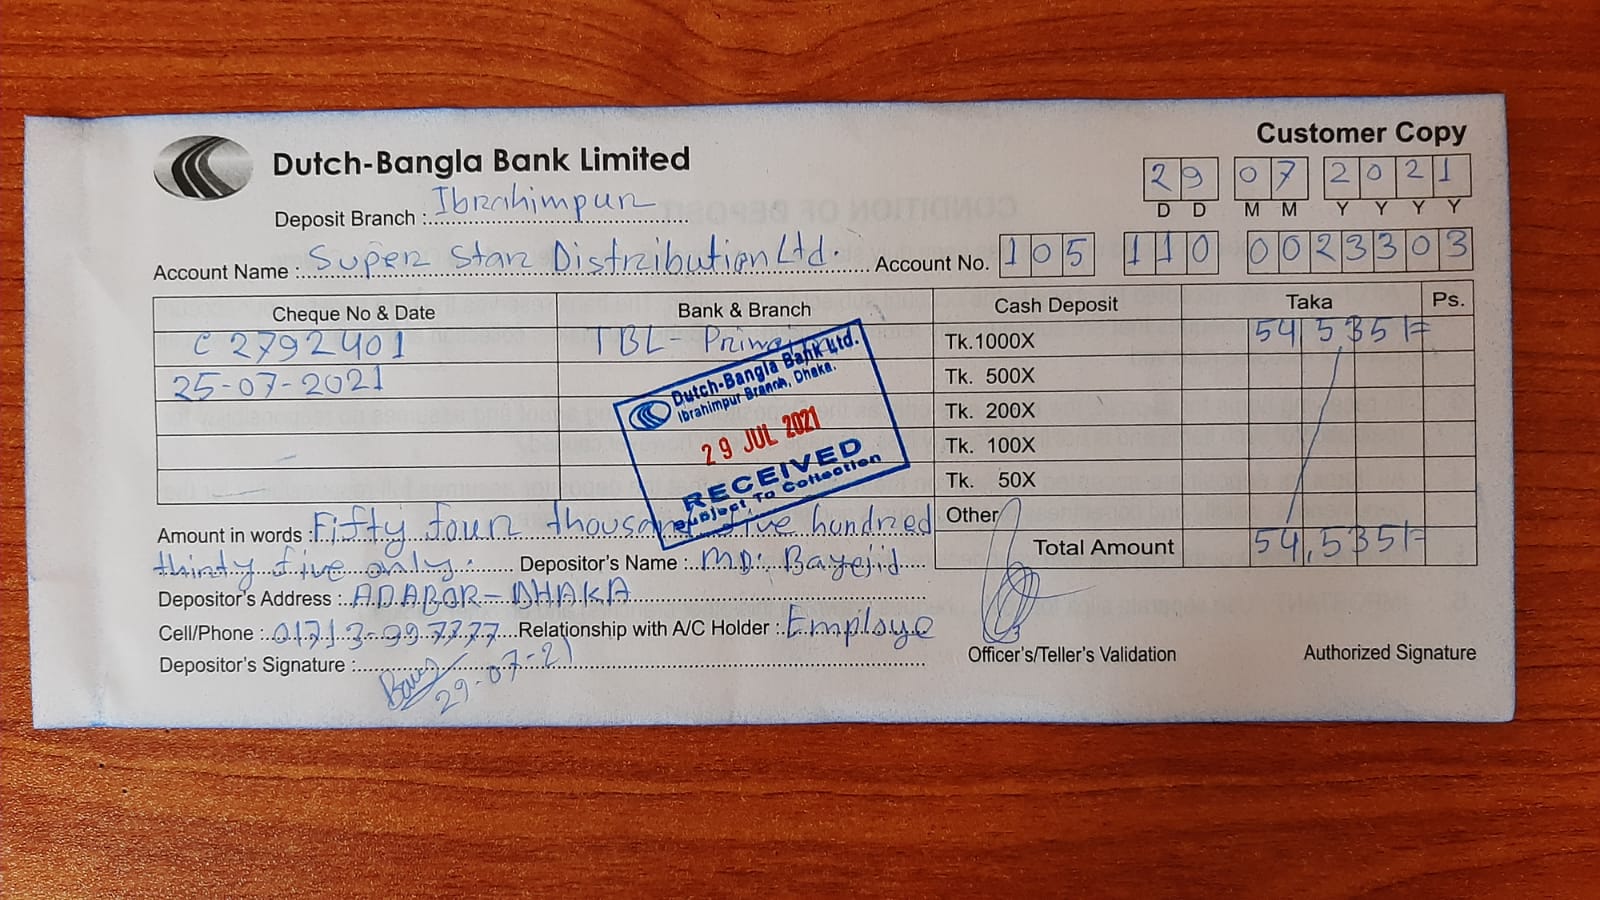 Customer Copy
Dutch-Bangla Bank Limited
29 07 2021
D D M M Y Y Y Y
Deposit Branch : Ibrahimpur
Account Name : Super Star Distribution Ltd. Account No. 105 110 0023303
Cheque No & Date Bank & Branch Cash Deposit Taka Ps.
C 2792401 TBL- Tk.1000X 54,535/=
25-07-2021 Tk. 500X
Tk. 200X
Tk. 100X
Tk. 50X
Dutch-Bangla Bank Ltd.
Ibrahimpur Branch, Dhaka.
29 JUL 2021
RECEIVED
Subject To Collection
Other
Amount in words : Fifty four thousand five hundred
Total Amount 54,535/=
thirty five only. Depositor's Name : MD: Bayejid
Depositor's Address : ADABOR-DHAKA
Cell/Phone : 01713-997777 Relationship with A/C Holder : Employe
Depositor's Signature : 29-07-21
Officer's/Teller's Validation Authorized Signature